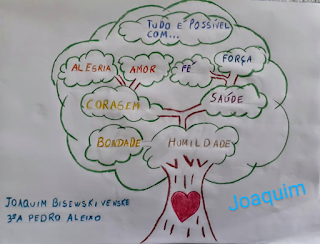 TUDO É POSSÍVEL
COM...
FORÇA
ALEGRIA AMOR FÉ
CORAGEM SAÚDE
BONDADE HUMILDADE
JOAQUIM BISEWSKI VENSKE
3ºA PEDRO ALEIXO
Joaquim